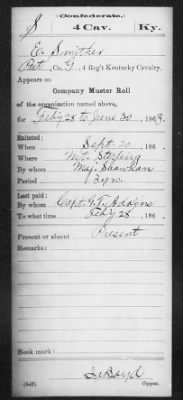 Confederate.
S 4 Cav. Ky.
E. Smither
Pvt, Co. G, 4 Reg't Kentucky Cavalry.
Appears on
Company Muster Roll
of the organization named above,
for Feby 28 to June 30, 1863.
Enlisted:
When Sept. 20, 186 .
Where Mt. Sterling
By whom Maj. Shawhan
Period 3 yrs.
Last paid:
By whom Capt. G. T. Adkins
To what time Feby 28, 186 .
Present or absent Present
Remarks:
Book mark:
J. Boyd
(642) Copyist.